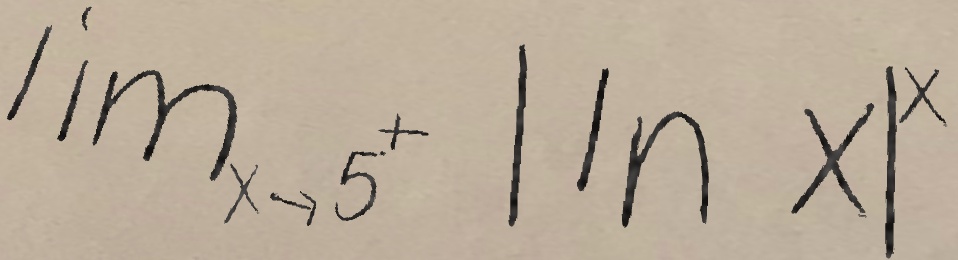 lim_{x→5^+} |ln x|^x